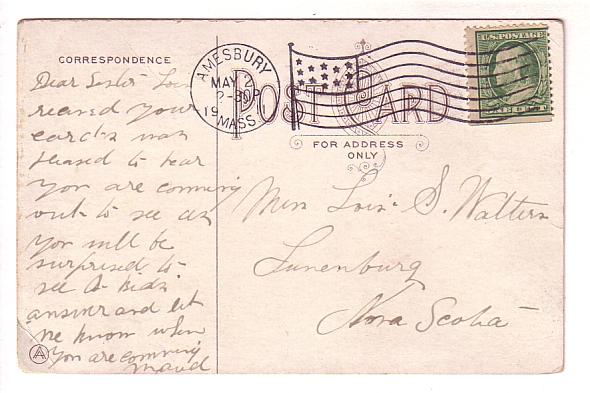 CORRESPONDENCE
Dear Sister Lou
receved your
card & was
pleased to hear
you are comming
out to see us
you will be
surprised to
see
answer and let
me know when
you are comming
Maud
AMESBURY
MAY 2
2-30P
19
MASS.
POST CARD
FOR ADDRESS
ONLY
U.S. POSTAGE
Miss Lois S. Walters
Lunenburg
Nova Scotia
A